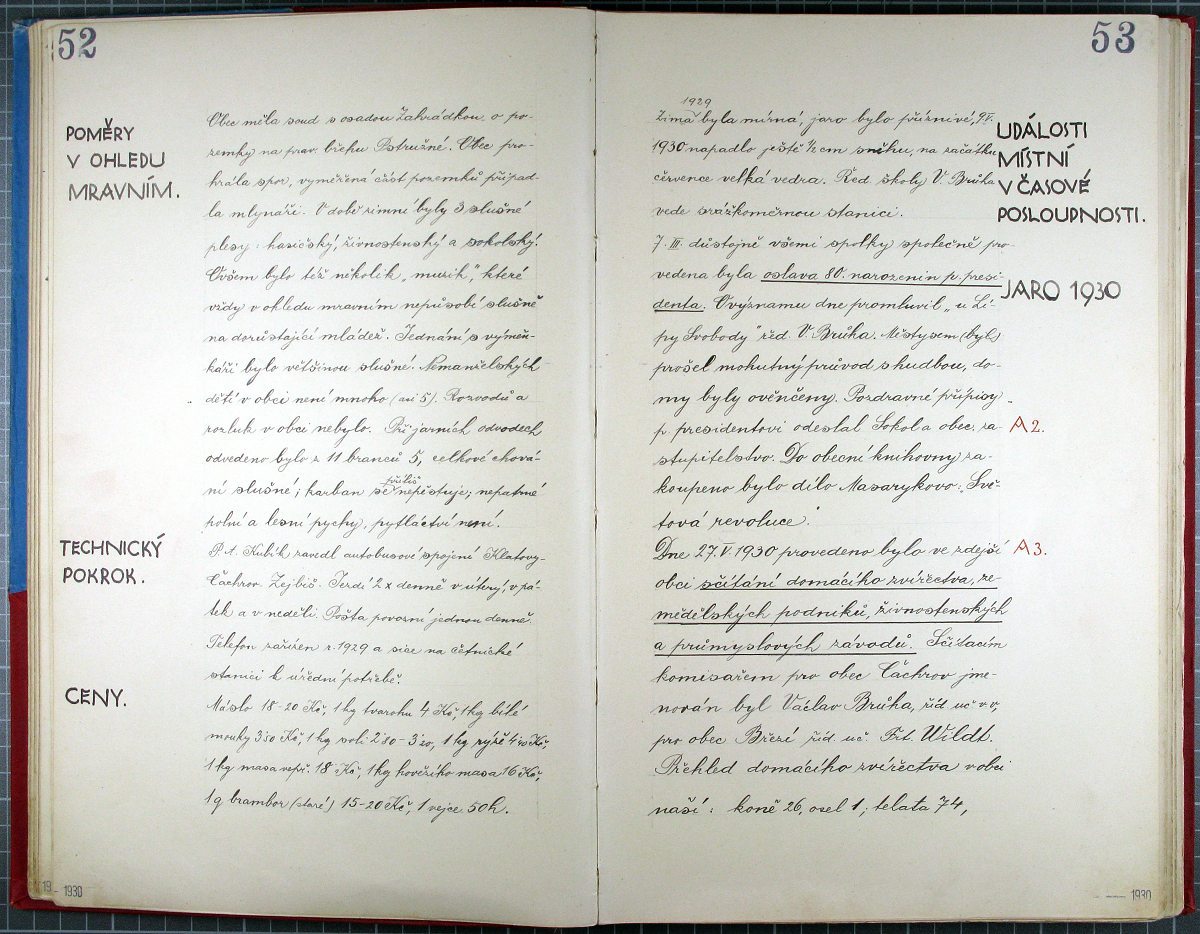 52
POMĚRY
V OHLEDU
MRAVNÍM.
Obec měla soud s osadou Zahrádkou o po-
zemky na prav. břehu Ostružné. Obec pro-
hrála spor, vyměřená část pozemků připad-
la mlynáři. V době zimní byly 3 slušné
plesy: hasičský, živnostenský a sokolský.
Ovšem bylo též několik „muzik“, které
vždy v ohledu mravním nepůsobí slušně
na dorůstající mládež. Jednání s výměn-
káři bylo většinou slušné. Nemanželských
dětí v obci není mnoho (asi 5). Rozvodů a
rozluk v obci nebylo. Při jarních odvodech
odvedeno bylo z 11 branců 5, celkové chová-
ní slušné; karban se příliš nepěstuje; nepatrné
polní a lesní pychy, pytláctví není.
TECHNICKÝ
POKROK.
P. A. Kubík zavedl autobusové spojení Klatovy-
Čachrov-Zejbiš. Jezdí 2x denně v úterý, v pá-
tek a v neděli. Pošta povozní jednou denně.
Telefon zařízen r. 1929 a sice na četnické
stanici k úřední potřebě.
CENY.
Máslo 18-20 Kč, 1 kg tvarohu 4 Kč, 1 kg bílé
mouky 3'50 Kč, 1 kg soli 2'80-3'20, 1 kg rýže 4'40 Kč
1 kg masa vepř. 18 Kč, 1 kg hovězího masa 16 Kč,
1 q brambor (staré) 15-20 Kč, 1 vejce 50 h.
19 - 1930
53
UDÁLOSTI
MÍSTNÍ
V ČASOVÉ
POSLOUPNOSTI.
1929
Zima byla mírná, jaro bylo příznivé, 9.V.
1930 napadlo ještě ½ cm sněhu, na začátku
července velká vedra. Řed. školy V. Brůha
vede srážkoměrnou stanici.
JARO 1930
7. III. důstojně všemi spolky společně pro-
vedena byla oslava 80. narozenin p. presi-
denta. O významu dne promluvil „u Lí-
py Svobody“ řed. V. Brůha. Městysem (byl)
prošel mohutný průvod s hudbou, do-
my byly ověnčeny. Pozdravné přípisy
p. presidentovi odeslal Sokol a obec. za- A 2.
stupitelstvo. Do obecní knihovny za-
koupeno bylo dílo Masarykovo: „Svě-
tová revoluce“.
Dne 27.V. 1930 provedeno bylo ve zdejší A 3.
obci sčítání domácího zvířectva, ze-
mědělských podniků, živnostenských
a průmyslových závodů. Sčítacím
komisařem pro obec Čachrov jme-
nován byl Václav Brůha, říd. uč. v. v.
pro obec Březí říd. uč. Frt. Wildt.
Přehled domácího zvířectva v obci
naší: koně 26, osel 1, telata 74,
- — 1930